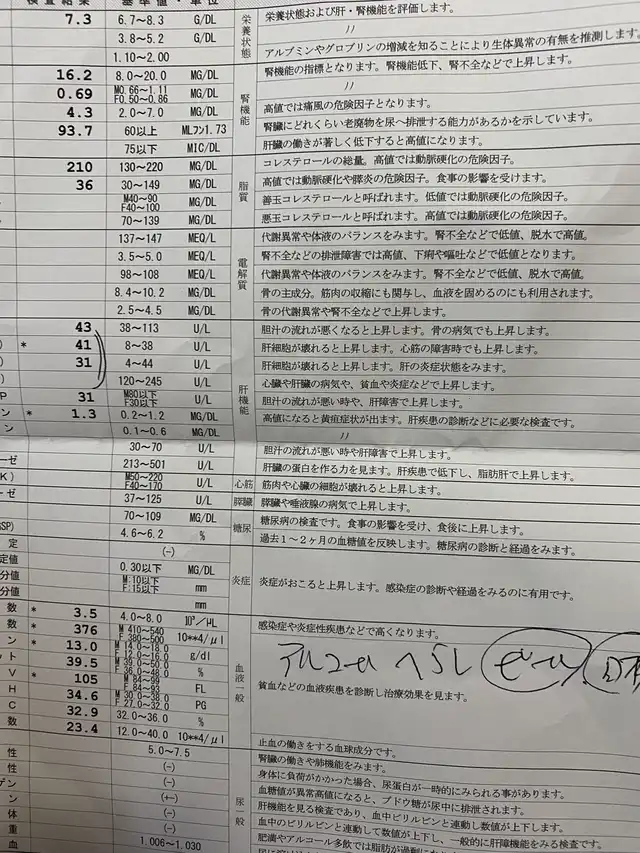 検査結果 基準値・単位
7.3 6.7～8.3 G/DL 栄養状態 栄養状態および肝・腎機能を評価します。
3.8～5.2 G/DL 〃
1.10～2.00 アルブミンやグロブリンの増減を知ることにより生体異常の有無を推測します。
16.2 8.0～20.0 MG/DL 腎機能 腎機能の指標となります。腎機能低下、腎不全などで上昇します。
0.69 M0.66～1.11 F0.50～0.86 MG/DL 〃
4.3 2.0～7.0 MG/DL 高値では痛風の危険因子となります。
93.7 60以上 MLﾌﾝ1.73 腎臓にどれくらい老廃物を尿へ排泄する能力があるかを示しています。
75以下 MIC/DL 肝臓の働きが著しく低下すると高値になります。
210 130～220 MG/DL 脂質 コレステロールの総量。高値では動脈硬化の危険因子。
36 30～149 MG/DL 高値では動脈硬化や膵炎の危険因子。食事の影響を受けます。
M40～90 F40～100 MG/DL 善玉コレステロールと呼ばれます。低値では動脈硬化の危険因子。
70～139 MG/DL 悪玉コレステロールと呼ばれます。高値では動脈硬化の危険因子。
137～147 MEQ/L 電解質 代謝異常や体液のバランスをみます。腎不全などで低値、脱水で高値。
3.5～5.0 MEQ/L 腎不全などの排泄障害では高値、下痢や嘔吐などで低値となります。
98～108 MEQ/L 代謝異常や体液のバランスをみます。腎不全などで低値、脱水で高値。
8.4～10.2 MG/DL 骨の主成分。筋肉の収縮にも関与し、血液を固めるのにも利用されます。
2.5～4.5 MG/DL 骨の代謝異常や腎不全などで上昇します。
43 38～113 U/L 肝機能 胆汁の流れが悪くなると上昇します。骨の病気でも上昇します。
) * 41 8～38 U/L 肝細胞が壊れると上昇します。心筋の障害時でも上昇します。
) 31 4～44 U/L 肝細胞が壊れると上昇します。肝の炎症状態をみます。
) 120～245 U/L 心臓や肝臓の病気や、貧血や炎症などで上昇します。
P 31 M80以下 F30以下 U/L 胆汁の流れが悪い時や、肝障害で上昇します。
ン * 1.3 0.2～1.2 MG/DL 高値になると黄疸症状が出ます。肝疾患の診断などに必要な検査です。
ン 0.1～0.6 MG/DL 〃
30～70 U/L 胆汁の流れが悪い時や肝障害で上昇します。
ーゼ 213～501 U/L 肝臓の蛋白を作る力を見ます。肝疾患で低下し、脂肪肝で上昇します。
K) M50～220 F40～170 U/L 心筋 筋肉や心臓の細胞が壊れると上昇します。
ーゼ 37～125 U/L 膵臓 膵臓や唾液腺の病気で上昇します。
70～109 MG/DL 糖尿 糖尿病の検査です。食事の影響を受け、食後に上昇します。
GSP) 4.6～6.2 % 過去1～2ヶ月の血糖値を反映します。糖尿病の診断と経過をみます。
定 (-)
定値 0.30以下 MG/DL 炎症 炎症がおこると上昇します。感染症の診断や経過をみるのに有用です。
分値 M:10以下 F:15以下 mm
分値 mm
数 * 3.5 4.0～8.0 10³/μL 血液一般 感染症や炎症性疾患などで高くなります。
数 * 376 M 410～540 F 380～500 10**4/μl
ン * 13.0 M 14.0～18.0 F 12.0～16.0 g/dl アルコール へらし ビール
ット 39.5 M 39.0～50.0 F 36.0～48.0 %
V * 105 M 84～99 F 84～93 FL 貧血などの血液疾患を診断し治療効果を見ます。
H 34.6 M 30.0～38.0 F 27.0～32.0 PG
C 32.9 32.0～36.0 %
数 23.4 12.0～40.0 10**4/μl 止血の働きをする血球成分です。
性 5.0～7.5 尿一般 腎臓の働きや肺機能をみます。
性 (-) 身体に負荷がかかった場合、尿蛋白が一時的にみられる事があります。
(-) 血糖値が異常高値になると、ブドウ糖が尿中に排泄されます。
ゲン (+-) 肝機能を見る検査であり、血中ビリルビンと連動し数値が上下します。
ン (-) 血中のビリルビンと連動して数値が上下し、一般的に肝障害をみる検査です。
体 (-)
重 1.006～1.030
血